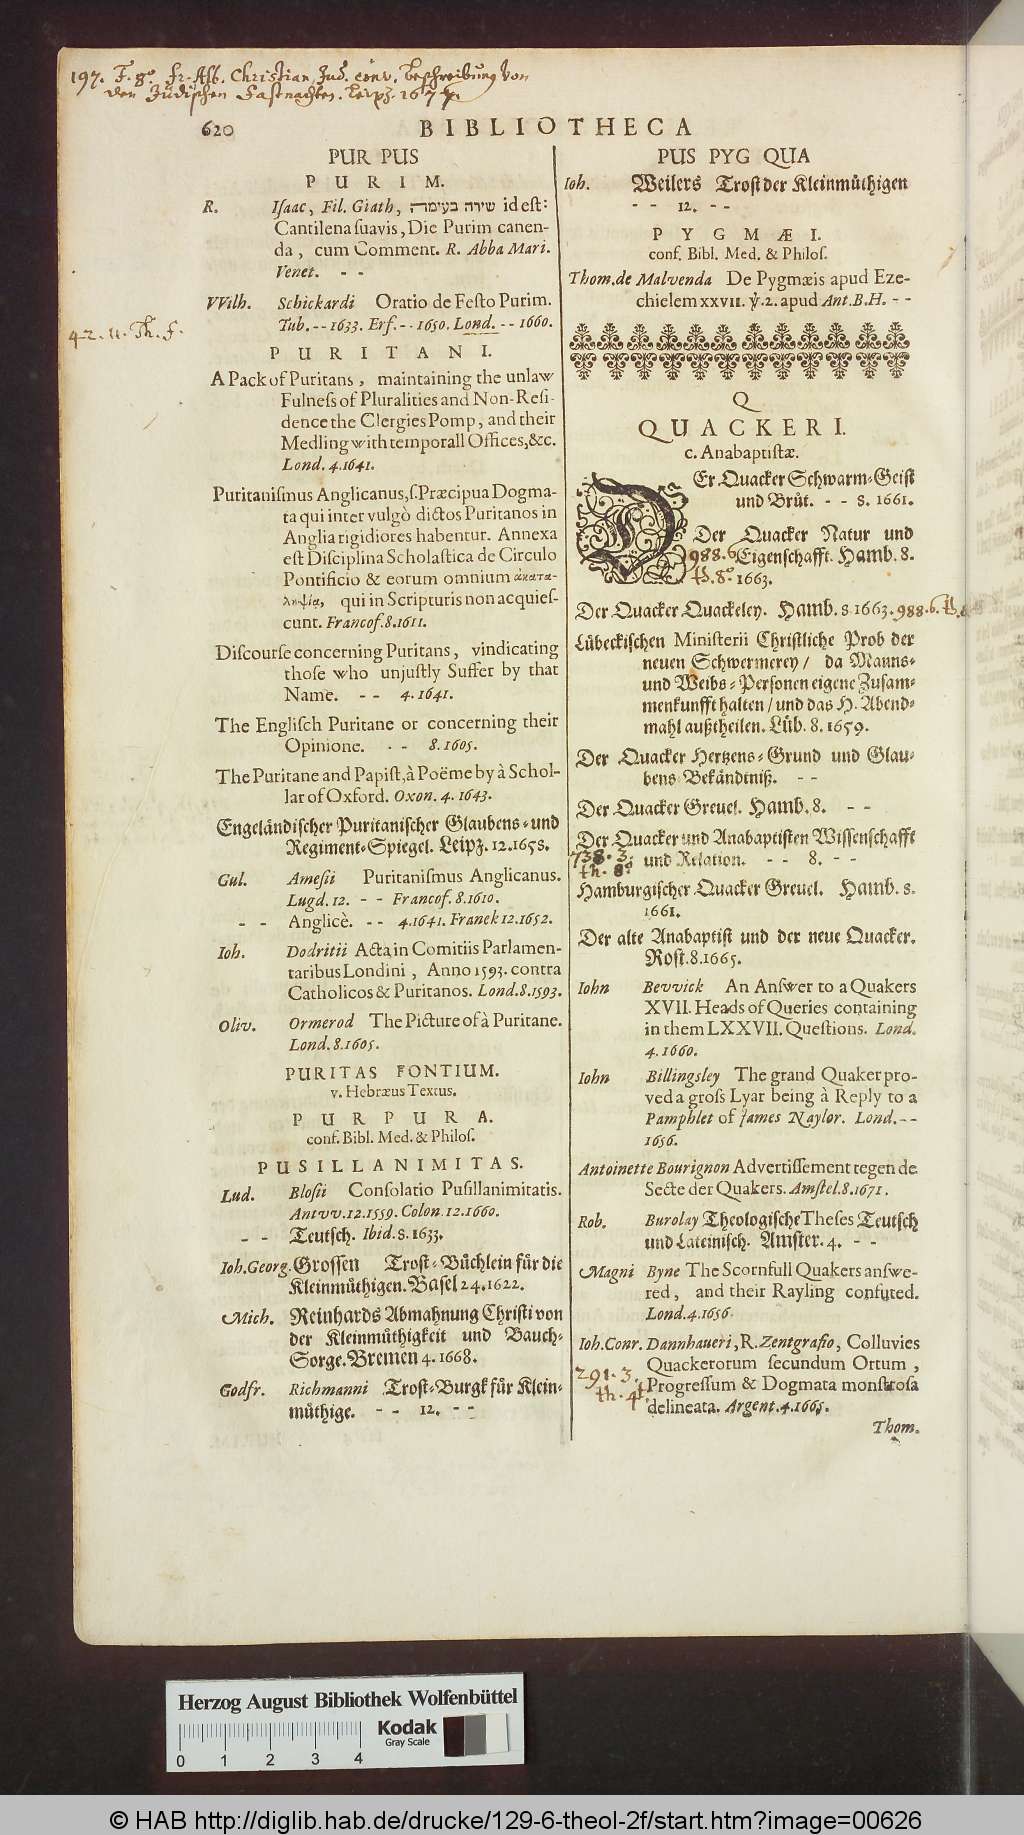 197. F. 8º. Fr. Alb. Christian. Jud. conv. Beschreibung von
den Jüdischen Fastnachten. Leipz. 1677.
620 BIBLIOTHECA
PUR PUS
PURIM.
R. Isaac, Fil. Giath, שירה בעימה id est:
Cantilena suavis, Die Purim canen-
da, cum Comment. R. Abba Mari.
Venet. - -
VVilh. Schickardi Oratio de Festo Purim.
Tub. -- 1633. Erf. -- 1650. Lond. -- 1660.
4-2. 11. Th. f.
PURITANI.
A Pack of Puritans, maintaining the unlaw
Fulness of Pluralities and Non-Resi-
dence the Clergies Pomp, and their
Medling with temporall Offices, &c.
Lond. 4. 1641.
Puritanismus Anglicanus, s. Præcipua Dogma-
ta qui inter vulgò dictos Puritanos in
Anglia rigidiores habentur. Annexa
est Disciplina Scholastica de Circulo
Pontificio & eorum omnium ἀκατα-
ληψία, qui in Scripturis non acquies-
cunt. Francof. 8. 1611.
Discourse concerning Puritans, vindicating
those who unjustly Suffer by that
Name. - - 4. 1641.
The Englisch Puritane or concerning their
Opinione. - - 8. 1605.
The Puritane and Papist, à Poëme by à Schol-
lar of Oxford. Oxon. 4. 1643.
Engeländischer Puritanischer Glaubens-und
Regiment-Spiegel. Leipz. 12. 1658.
Gul. Amesii Puritanismus Anglicanus.
Lugd. 12. - - Francof. 8. 1610.
- - Anglicè. - - 4. 1641. Franek 12. 1652.
Ioh. Dodritii Acta in Comitiis Parlamen-
taribus Londini, Anno 1593. contra
Catholicos & Puritanos. Lond. 8. 1593.
Oliv. Ormerod The Picture of à Puritane.
Lond. 8. 1605.
PURITAS FONTIUM.
v. Hebræus Textus.
PURPURA.
conf. Bibl. Med. & Philos.
PUSILLANIMITAS.
Lud. Blosii Consolatio Pusillanimitatis.
Antvv. 12. 1559. Colon. 12. 1660.
- - Teutsch. Ibid. 8. 1633.
Ioh. Georg. Grossen Trost-Büchlein für die
Kleinmüthigen. Basel 24. 1622.
Mich. Reinhards Abmahnung Christi von
der Kleinmüthigkeit und Bauch-
Sorge. Bremen 4. 1668.
Godfr. Richmanni Trost-Burgk für Klein-
müthige. - - 12. - -
PUS PYG QUA
Ioh. Weilers Trost der Kleinmüthigen
- - 12. - -
PYGMÆI.
conf. Bibl. Med. & Philos.
Thom. de Malvenda De Pygmæis apud Eze-
chielem XXVII. ỳ. 2. apud Ant. B. H. - -
Q
QUACKERI.
c. Anabaptistæ.
DEr Quacker Schwarm-Geist
und Brüt. - - 8. 1661.
Der Quacker Natur und
988.6 Eigenschafft. Hamb. 8.
th. 8º 1663.
Der Quacker Quackeley. Hamb. 8 1663. 988.6. th. 8º
Lübeckischen Ministerii Christliche Prob der
neuen Schwermerey / da Manns-
und Weibs-Personen eigene Zusam-
menkunfft halten / und das H. Abend-
mahl außtheilen. Lüb. 8. 1659.
Der Quacker Hertzens-Grund und Glau-
bens Bekändtniß. - -
Der Quacker Greuel. Hamb. 8. - -
Der Quacker und Anabaptisten Wissenschafft
738.3. und Relation. - - 8. - -
th. 8º
Hamburgischer Quacker Greuel. Hamb. 8.
1661.
Der alte Anabaptist und der neue Quacker.
Rost. 8. 1665.
Iohn Bevvick An Answer to a Quakers
XVII. Heads of Queries containing
in them LXXVII. Questions. Lond.
4. 1660.
Iohn Billingsley The grand Quaker pro-
ved a gross Lyar being à Reply to a
Pamphlet of James Naylor. Lond. --
1656.
Antoinette Bourignon Advertissement tegen de
Secte der Quakers. Amstel. 8. 1671.
Rob. Burolay Theologische Theses Teutsch
und Lateinisch. Amster. 4. - -
Magni Byne The Scornfull Quakers answe-
red, and their Rayling confuted.
Lond. 4. 1656.
Ioh. Conr. Dannhaueri, R. Zentgrafio, Colluvies
291.3. Quackerorum secundum Ortum,
th. 4º Progressum & Dogmata monstrosa
delineata. Argent. 4. 1665.
Thom.
Herzog August Bibliothek Wolfenbüttel
Kodak
Gray Scale
0 1 2 3 4
© HAB http://diglib.hab.de/drucke/129-6-theol-2f/start.htm?image=00626